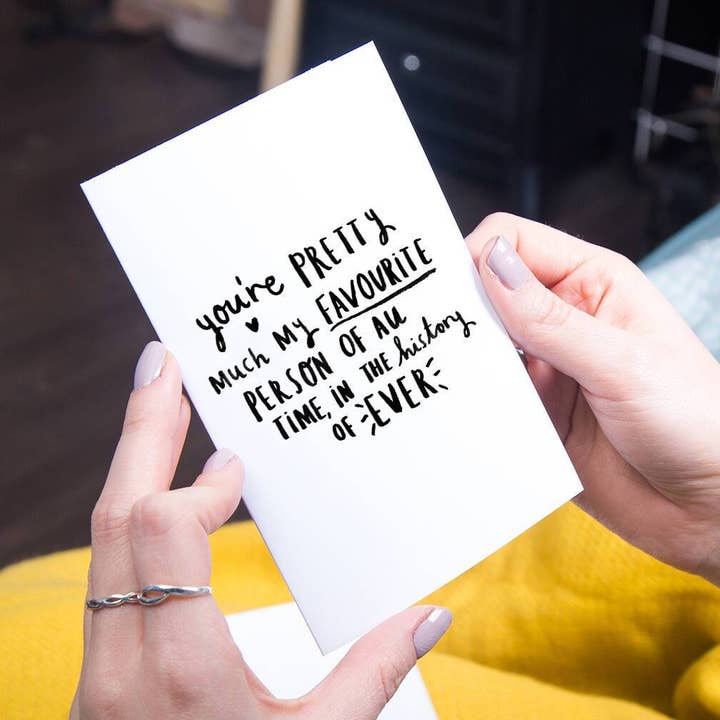 you're PRETTY
MUCH MY FAVOURITE
PERSON OF ALL
TIME, IN THE history
OF EVER